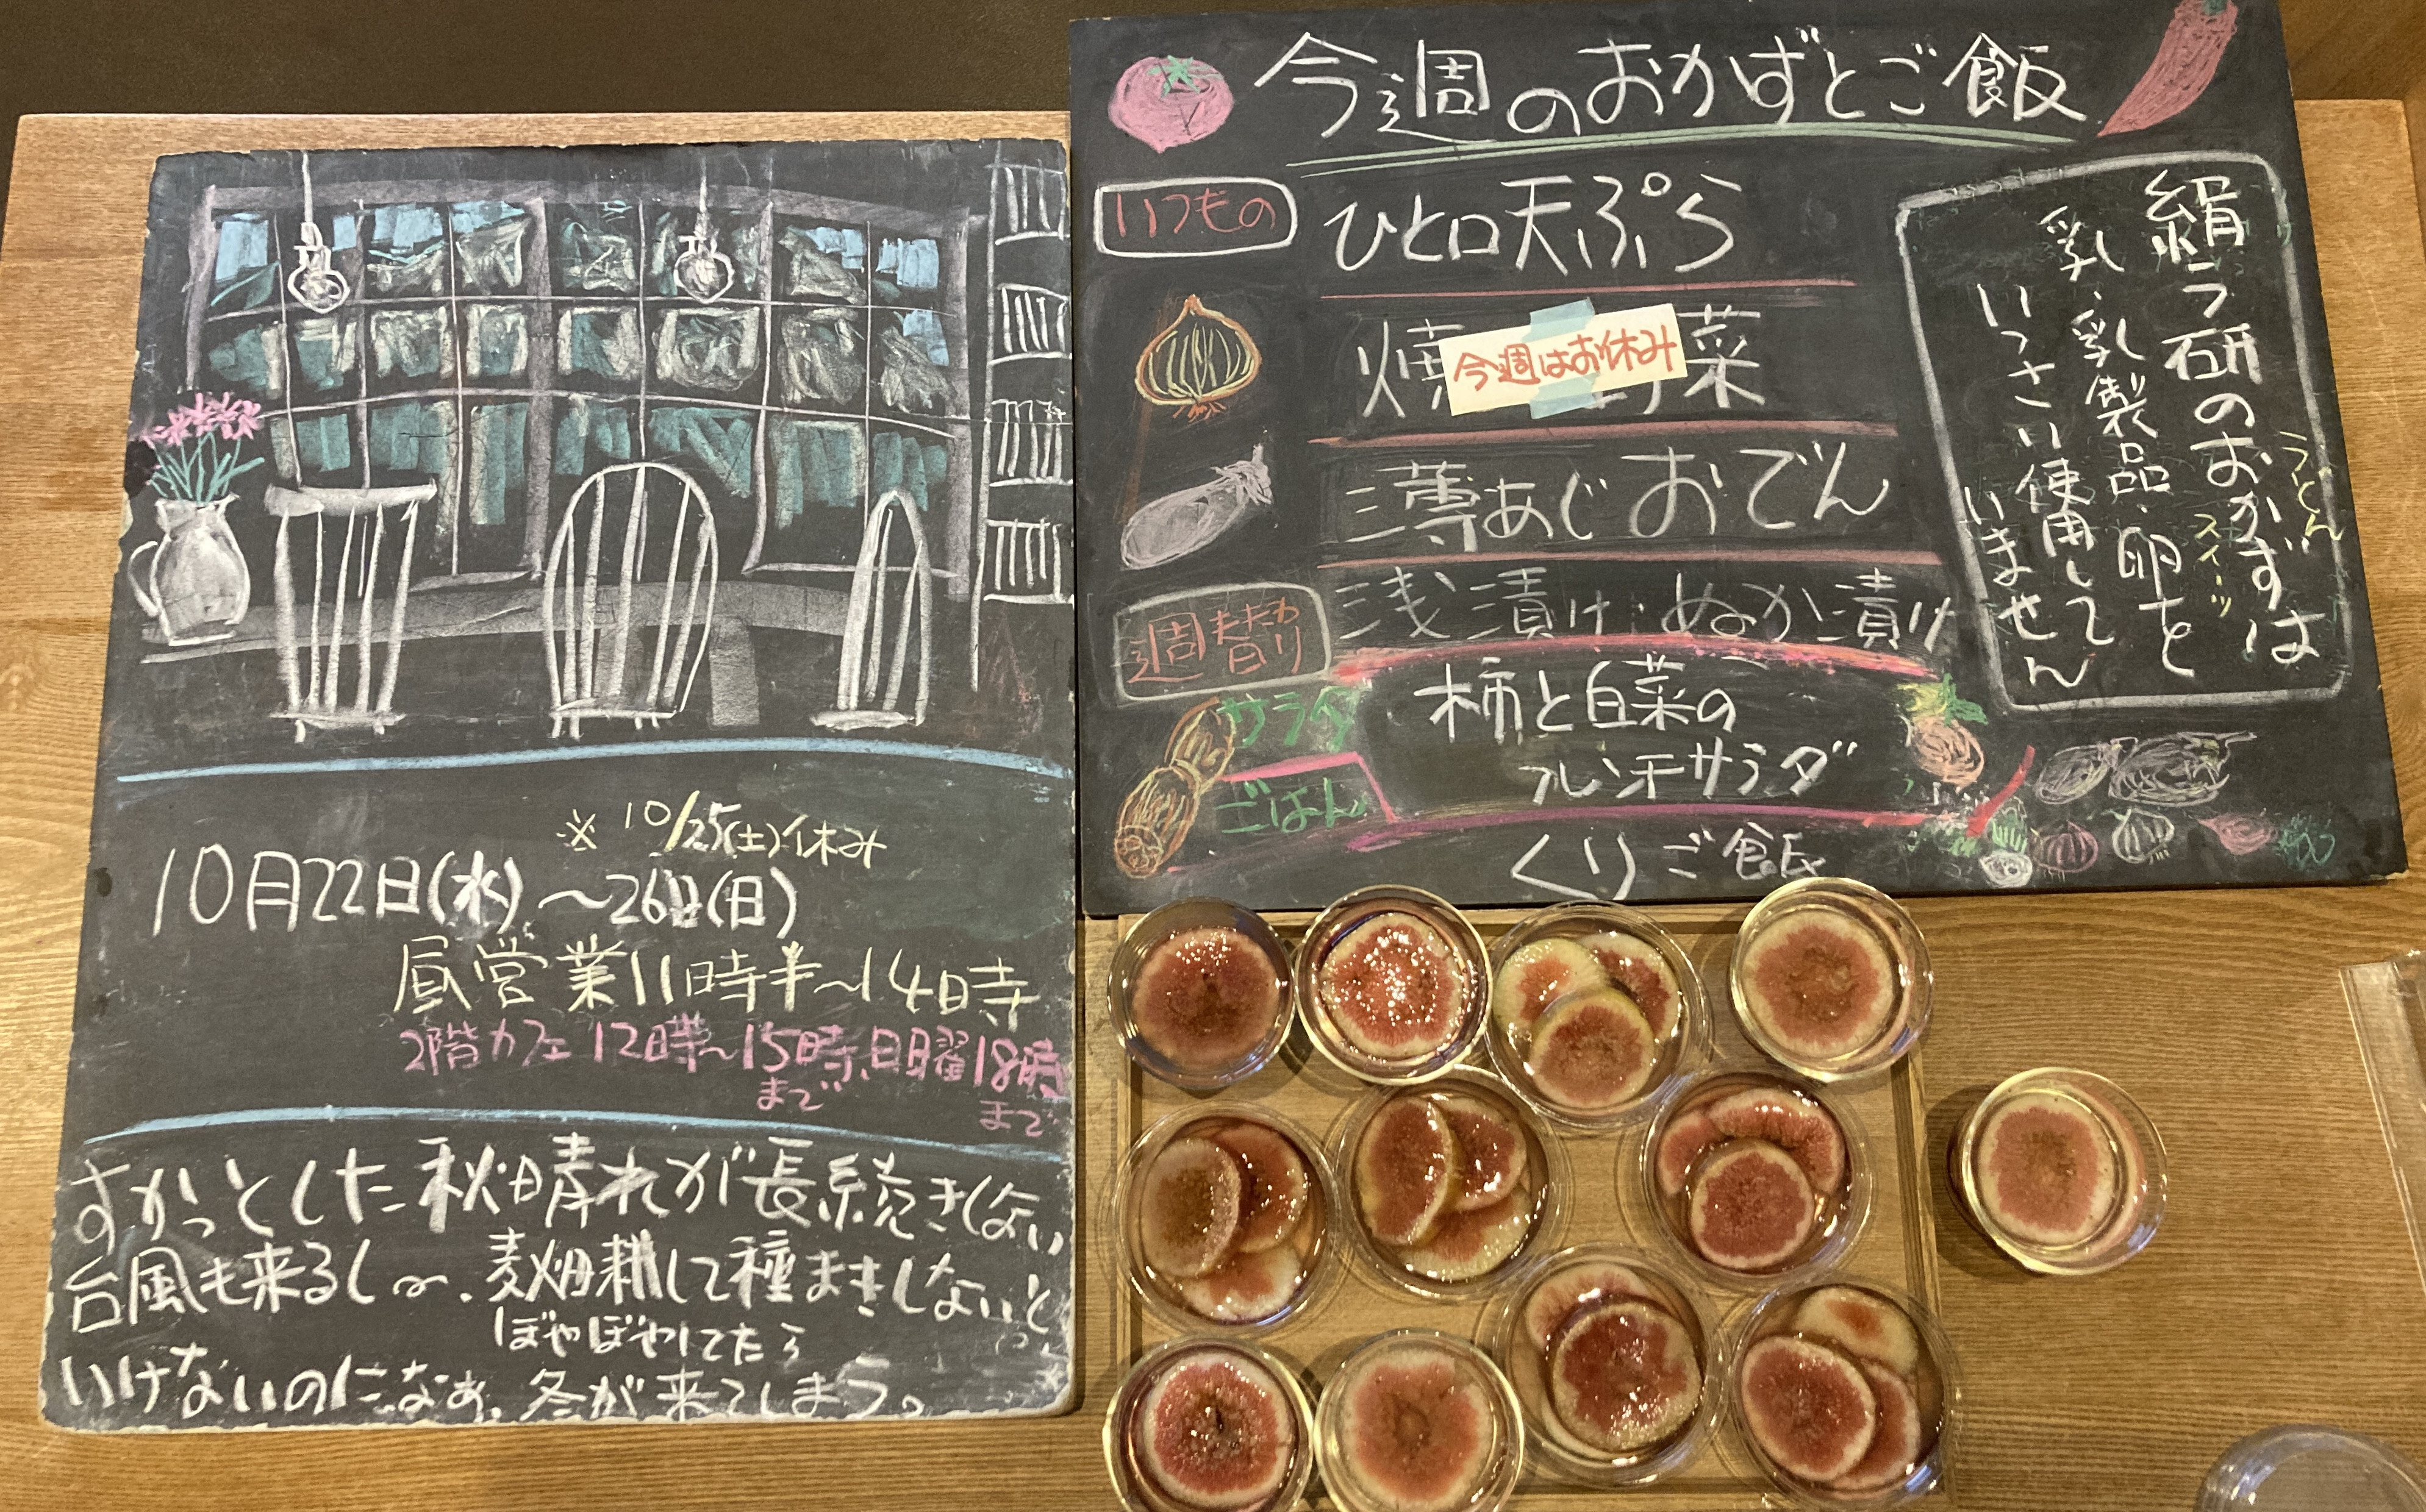 ※10/25(土)休み
10月22日(水)〜26日(日)
昼営業11時半〜14時
2階カフェ12時〜15時、日曜18時
まで
まで
すかっとした秋晴れが長続きしない
台風も来るし〜、麦畑耕して種まきしないと
いけないのになぁ、
ぼやぼやしてたら
冬が来てしまう。
今週のおかずとご飯
いつもの
ひと口天ぷら
焼
菜
今週はお休み
薄あじおでん
浅漬け・ぬか漬け
週替わり
サラダ
柿と白菜の
フレンチサラダ
ごはん
くりご飯
絹ラ研のおかずは
うどん
スイーツ
乳・乳製品・卵を
いっさい使用して
いません